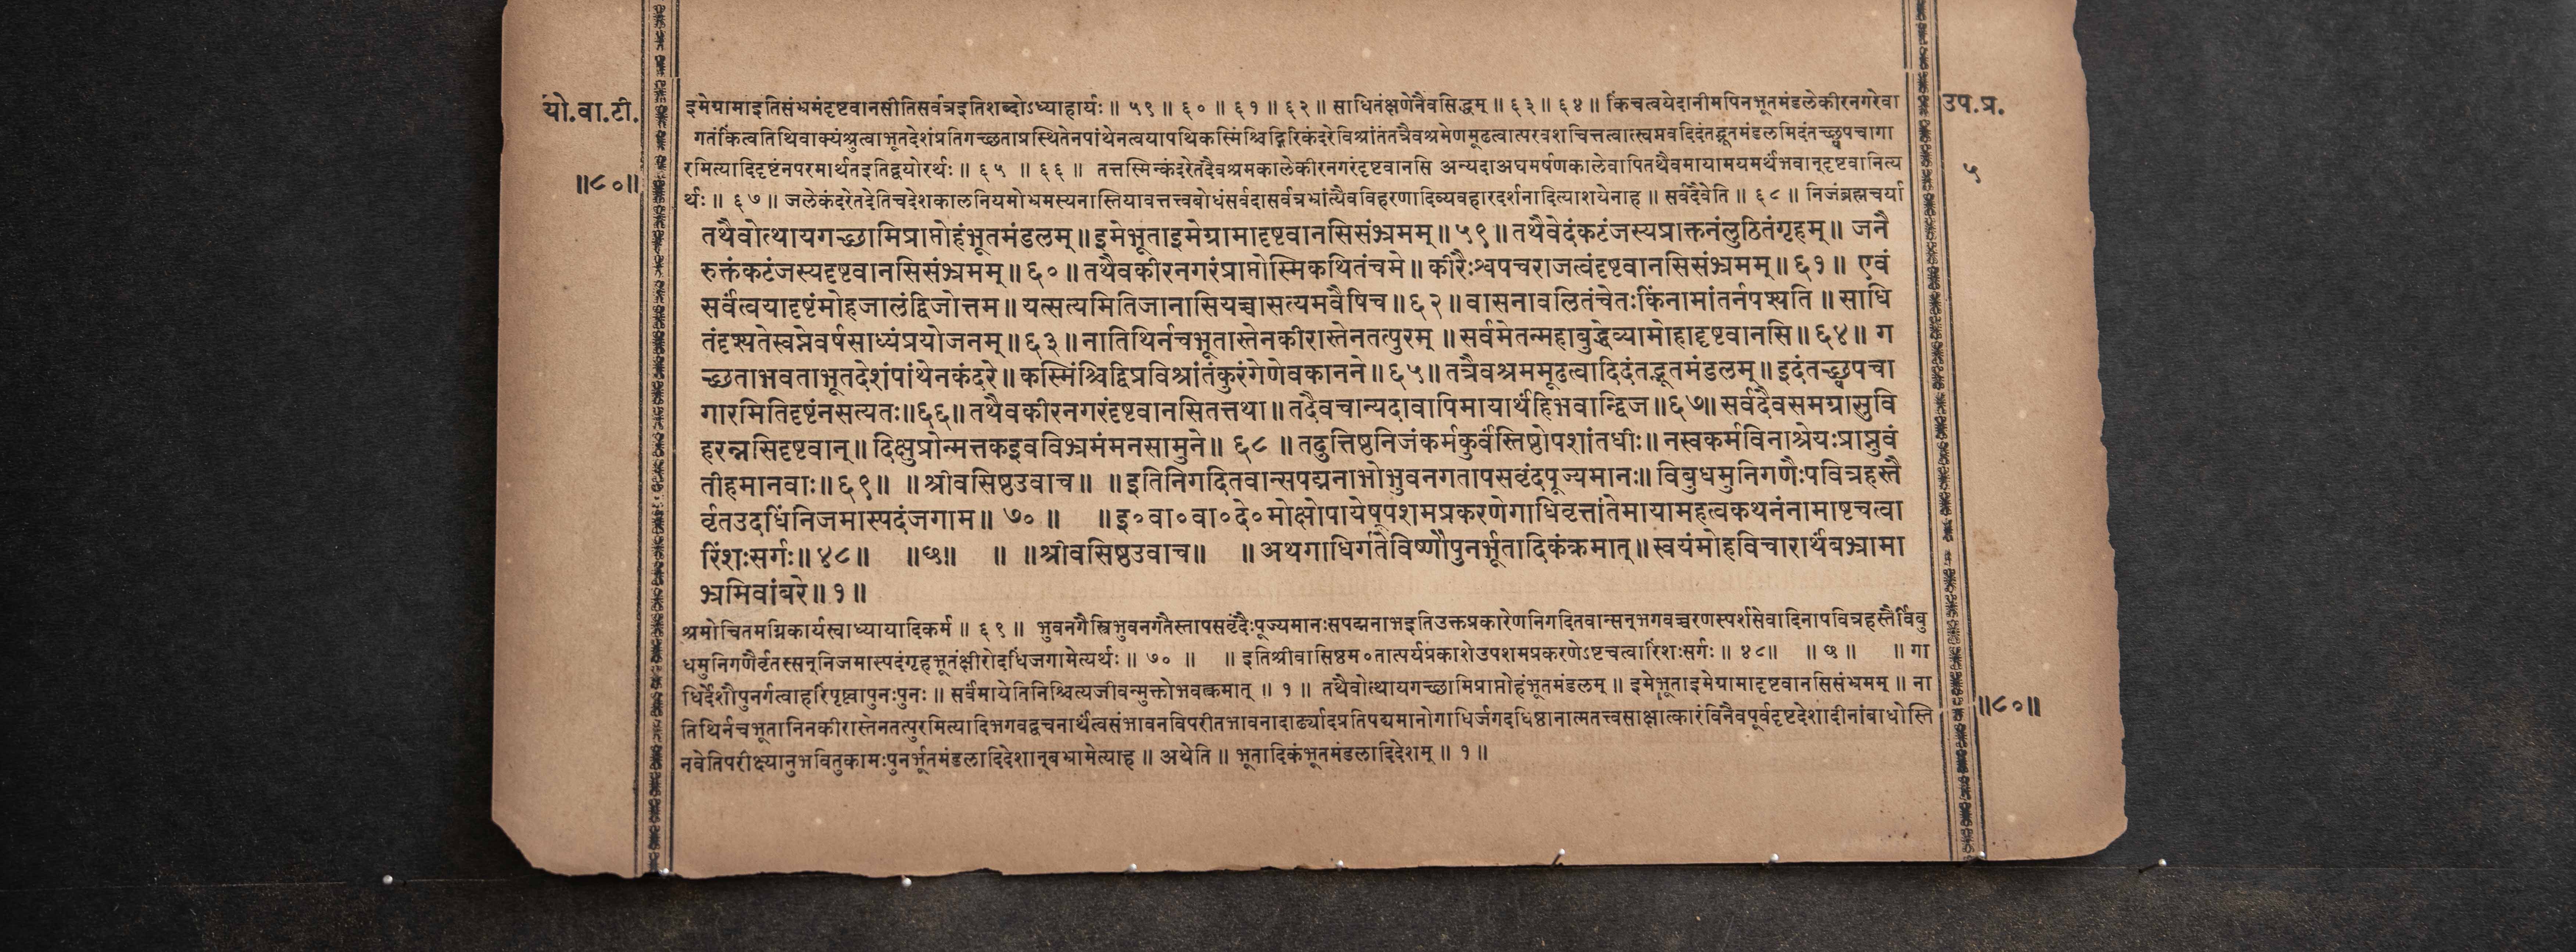 यो.वा.टी.
॥८०॥
इमेग्रामाइतिसंभ्रमंदृष्टवानसीतिसर्वत्रइतिशब्दोऽध्याहार्यः ॥ ५९ ॥ ६० ॥ ६१ ॥ ६२ ॥ साधितंक्षणेनैवसिद्धम् ॥ ६३ ॥ ६४ ॥ किंचत्वयेदानीमपिनभूतमंडलेकीरनगरेवा
गतंकिंत्वतिथिवाक्यंश्रुत्वाभूतदेशंप्रतिगच्छताप्रस्थितेनपांथेनत्वयापथिकस्मिंश्चिद्गिरिकंदरेविश्रांतंतत्रैवश्रमेणमूढत्वात्परवशचित्तत्वात्स्वप्नवदिदंतद्भूतमंडलमिदंतच्छ्वपचागा
रमित्यादिदृष्टंनपरमार्थतइतिद्वयोरर्थः ॥ ६५ ॥ ६६ ॥ तत्तस्मिन्कंदरेतदैवश्रमकालेकीरनगरंदृष्टवानसि अन्यदाअघमर्षणकालेवापितथैवमायामयमर्थंभवान्दृष्टवानित्य
र्थः ॥ ६७ ॥ जलेकंदरेतदेतिचदेशकालनियमोभ्रमस्यनास्तियावत्तत्त्वबोधंसर्वदासर्वत्रभ्रांत्यैवविहरणादिव्यवहारदर्शनादित्याशयेनाह ॥ सर्वदैवेति ॥ ६८ ॥ निजंब्रह्मचर्या
तथैवोत्थायगच्छामिप्राप्तोहंभूतमंडलम् ॥ इमेभूताइमेग्रामादृष्टवानसिसंभ्रमम् ॥ ५९ ॥ तथैवेदंकटंजस्यप्राक्तनंलुठितंगृहम् ॥ जनै
रुक्तंकटंजस्यदृष्टवानसिसंभ्रमम् ॥ ६० ॥ तथैवकीरनगरंप्राप्तोस्मिकथितंचमे ॥ कीरैःश्वपचराजत्वंदृष्टवानसिसंभ्रमम् ॥ ६१ ॥ एवं
सर्वंत्वयादृष्टंमोहजालंद्विजोत्तम ॥ यत्सत्यमितिजानासियच्चासत्यमवैषिच ॥ ६२ ॥ वासनावलितंचेतःकिंनामांतर्नपश्यति ॥ साधि
तंदृश्यतेस्वप्नेवर्षसाध्यंप्रयोजनम् ॥ ६३ ॥ नातिथिर्नचभूतास्तेनकीरास्तेनतत्पुरम् ॥ सर्वमेतन्महाबुद्धेव्यामोहाद्दृष्टवानसि ॥ ६४ ॥ ग
च्छताभवताभूतदेशंपांथेनकंदरे ॥ कस्मिंश्चिद्विप्रविश्रांतंकुरंगेणेवकानने ॥ ६५ ॥ तत्रैवश्रममूढत्वादिदंतद्भूतमंडलम् ॥ इदंतच्छ्वपचा
गारमितिदृष्टंनसत्यतः ॥ ६६ ॥ तथैवकीरनगरंदृष्टवानसितत्तथा ॥ तदैवचान्यदावापिमायार्थंहिभवान्द्विज ॥ ६७ ॥ सर्वदैवसमग्रासुवि
हरन्नसिदृष्टवान् ॥ दिक्षुप्रोन्मत्तकइवविभ्रमंमनसामुने ॥ ६८ ॥ तदुत्तिष्ठनिजंकर्मकुर्वंस्तिष्ठोपशांतधीः ॥ नस्वकर्मविनाश्रेयःप्राप्नुवं
तीहमानवाः ॥ ६९ ॥ ॥ श्रीवसिष्ठउवाच ॥ ॥ इतिनिगदितवान्सपद्मनाभोभुवनगतापसवृंदपूज्यमानः ॥ विबुधमुनिगणैःपवित्रहस्तै
र्वृतउदधिंनिजमास्पदंजगाम ॥ ७० ॥ ॥ इ०वा०वा०दे०मोक्षोपायेषूपशमप्रकरणेगाधिवृत्तांतेमायामहत्वकथनंनामाष्टचत्वा
रिंशःसर्गः ॥ ४८ ॥ ॥ छ ॥ ॥ ॥ श्रीवसिष्ठउवाच ॥ ॥ अथगाधिर्गतेविष्णौपुनर्भूतादिकंक्रमात् ॥ स्वयंमोहविचारार्थंबभ्रामा
भ्रमिवांबरे ॥ १ ॥
श्रमोचितमग्निकार्यस्वाध्यायादिकर्म ॥ ६९ ॥ भुवनगैस्त्रिभुवनगतैस्तापसवृंदैःपूज्यमानःसपद्मनाभइतिउक्तप्रकारेणनिगदितवान्सन्भगवच्चरणस्पर्शसेवादिनापवित्रहस्तैर्विबु
धमुनिगणैर्वृतस्सन्निजमास्पदंगृहभूतंक्षीरोदधिंजगामेत्यर्थः ॥ ७० ॥ ॥ इतिश्रीवासिष्ठम०तात्पर्यप्रकाशेउपशमप्रकरणेऽष्टचत्वारिंशःसर्गः ॥ ४८ ॥ ॥ छ ॥ ॥ गा
धिर्देशौपुनर्गत्वाहरिंपृष्ट्वापुनःपुनः ॥ सर्वंमायेतिनिश्चित्यजीवन्मुक्तोभवत्क्रमात् ॥ १ ॥ तथैवोत्थायगच्छामिप्राप्तोहंभूतमंडलम् ॥ इमेभूताइमेग्रामादृष्टवानसिसंभ्रमम् ॥ ना
तिथिर्नचभूतानिनकीरास्तेनतत्पुरमित्यादिभगवद्वचनार्थत्वसंभावनविपरीतभावनादार्ढ्यादप्रतिपद्यमानोगाधिर्जगदधिष्ठानात्मतत्त्वसाक्षात्कारंविनैवपूर्वदृष्टदेशादीनांबाधोस्ति
नवेतिपरीक्ष्यानुभवितुकामःपुनर्भूतमंडलादिदेशान्बभ्रामेत्याह ॥ अथेति ॥ भूतादिकंभूतमंडलादिदेशम् ॥ १ ॥
उप.प्र.
५
॥८०॥